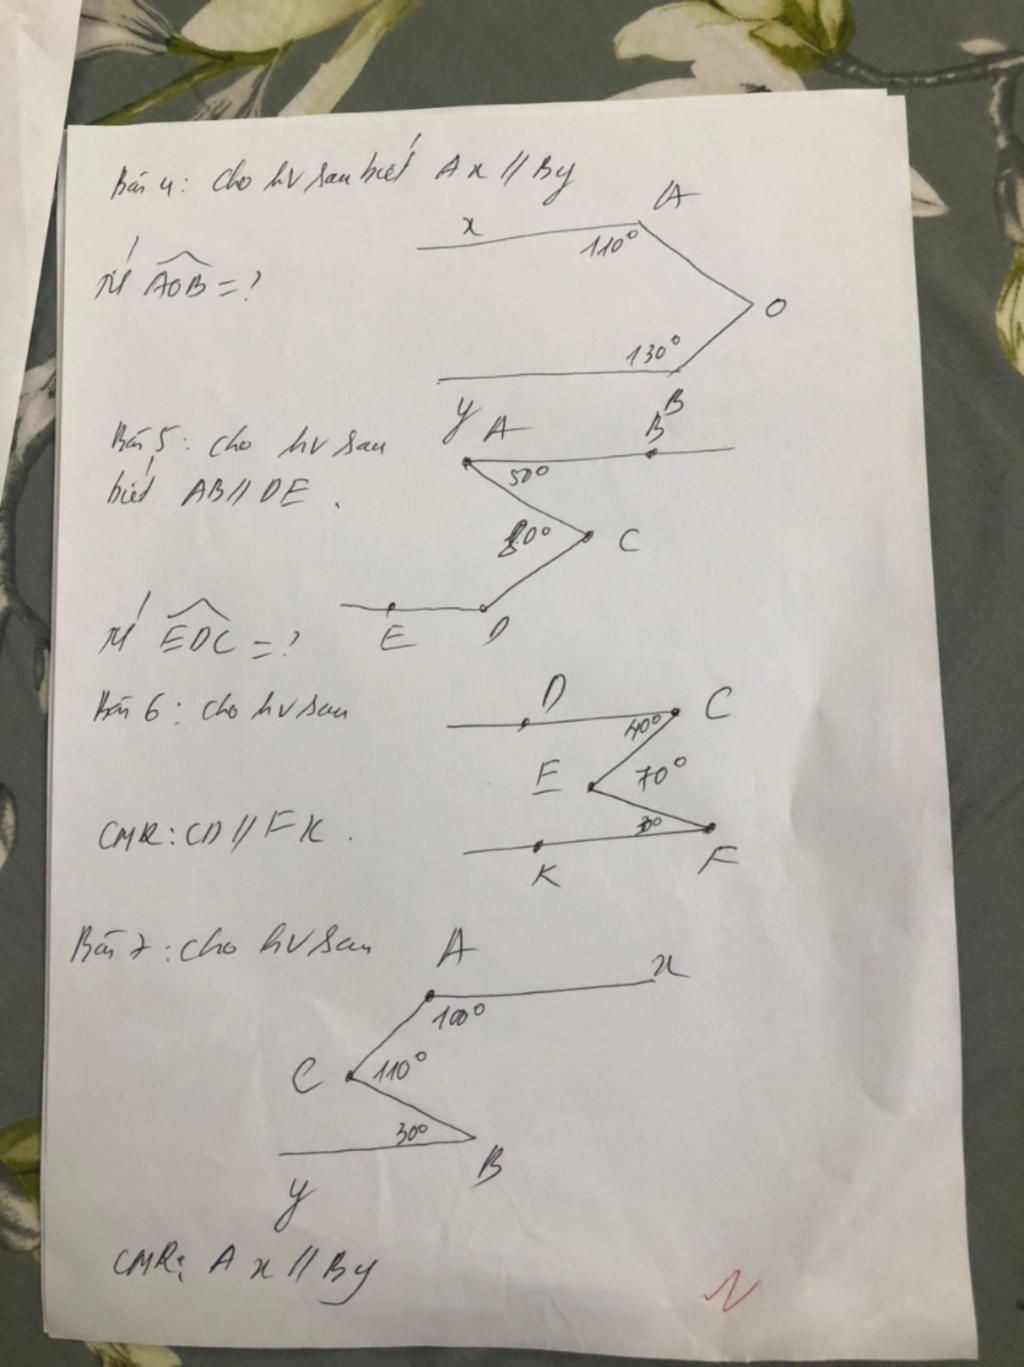 Bài 4: cho hv sau biết Ax // By
x
A
110°
Tí AOB = ?
O
130°
B
y
Bài 5: cho hv sau
A
B
biết AB // DE.
50°
80°
C
Tí EDC = ?
E
D
Bài 6: cho hv sau
D
C
40°
E
70°
CMR: CD // FK.
30°
K
F
Bài 7: cho hv sau
A
x
100°
C
110°
30°
B
y
CMR: Ax // By